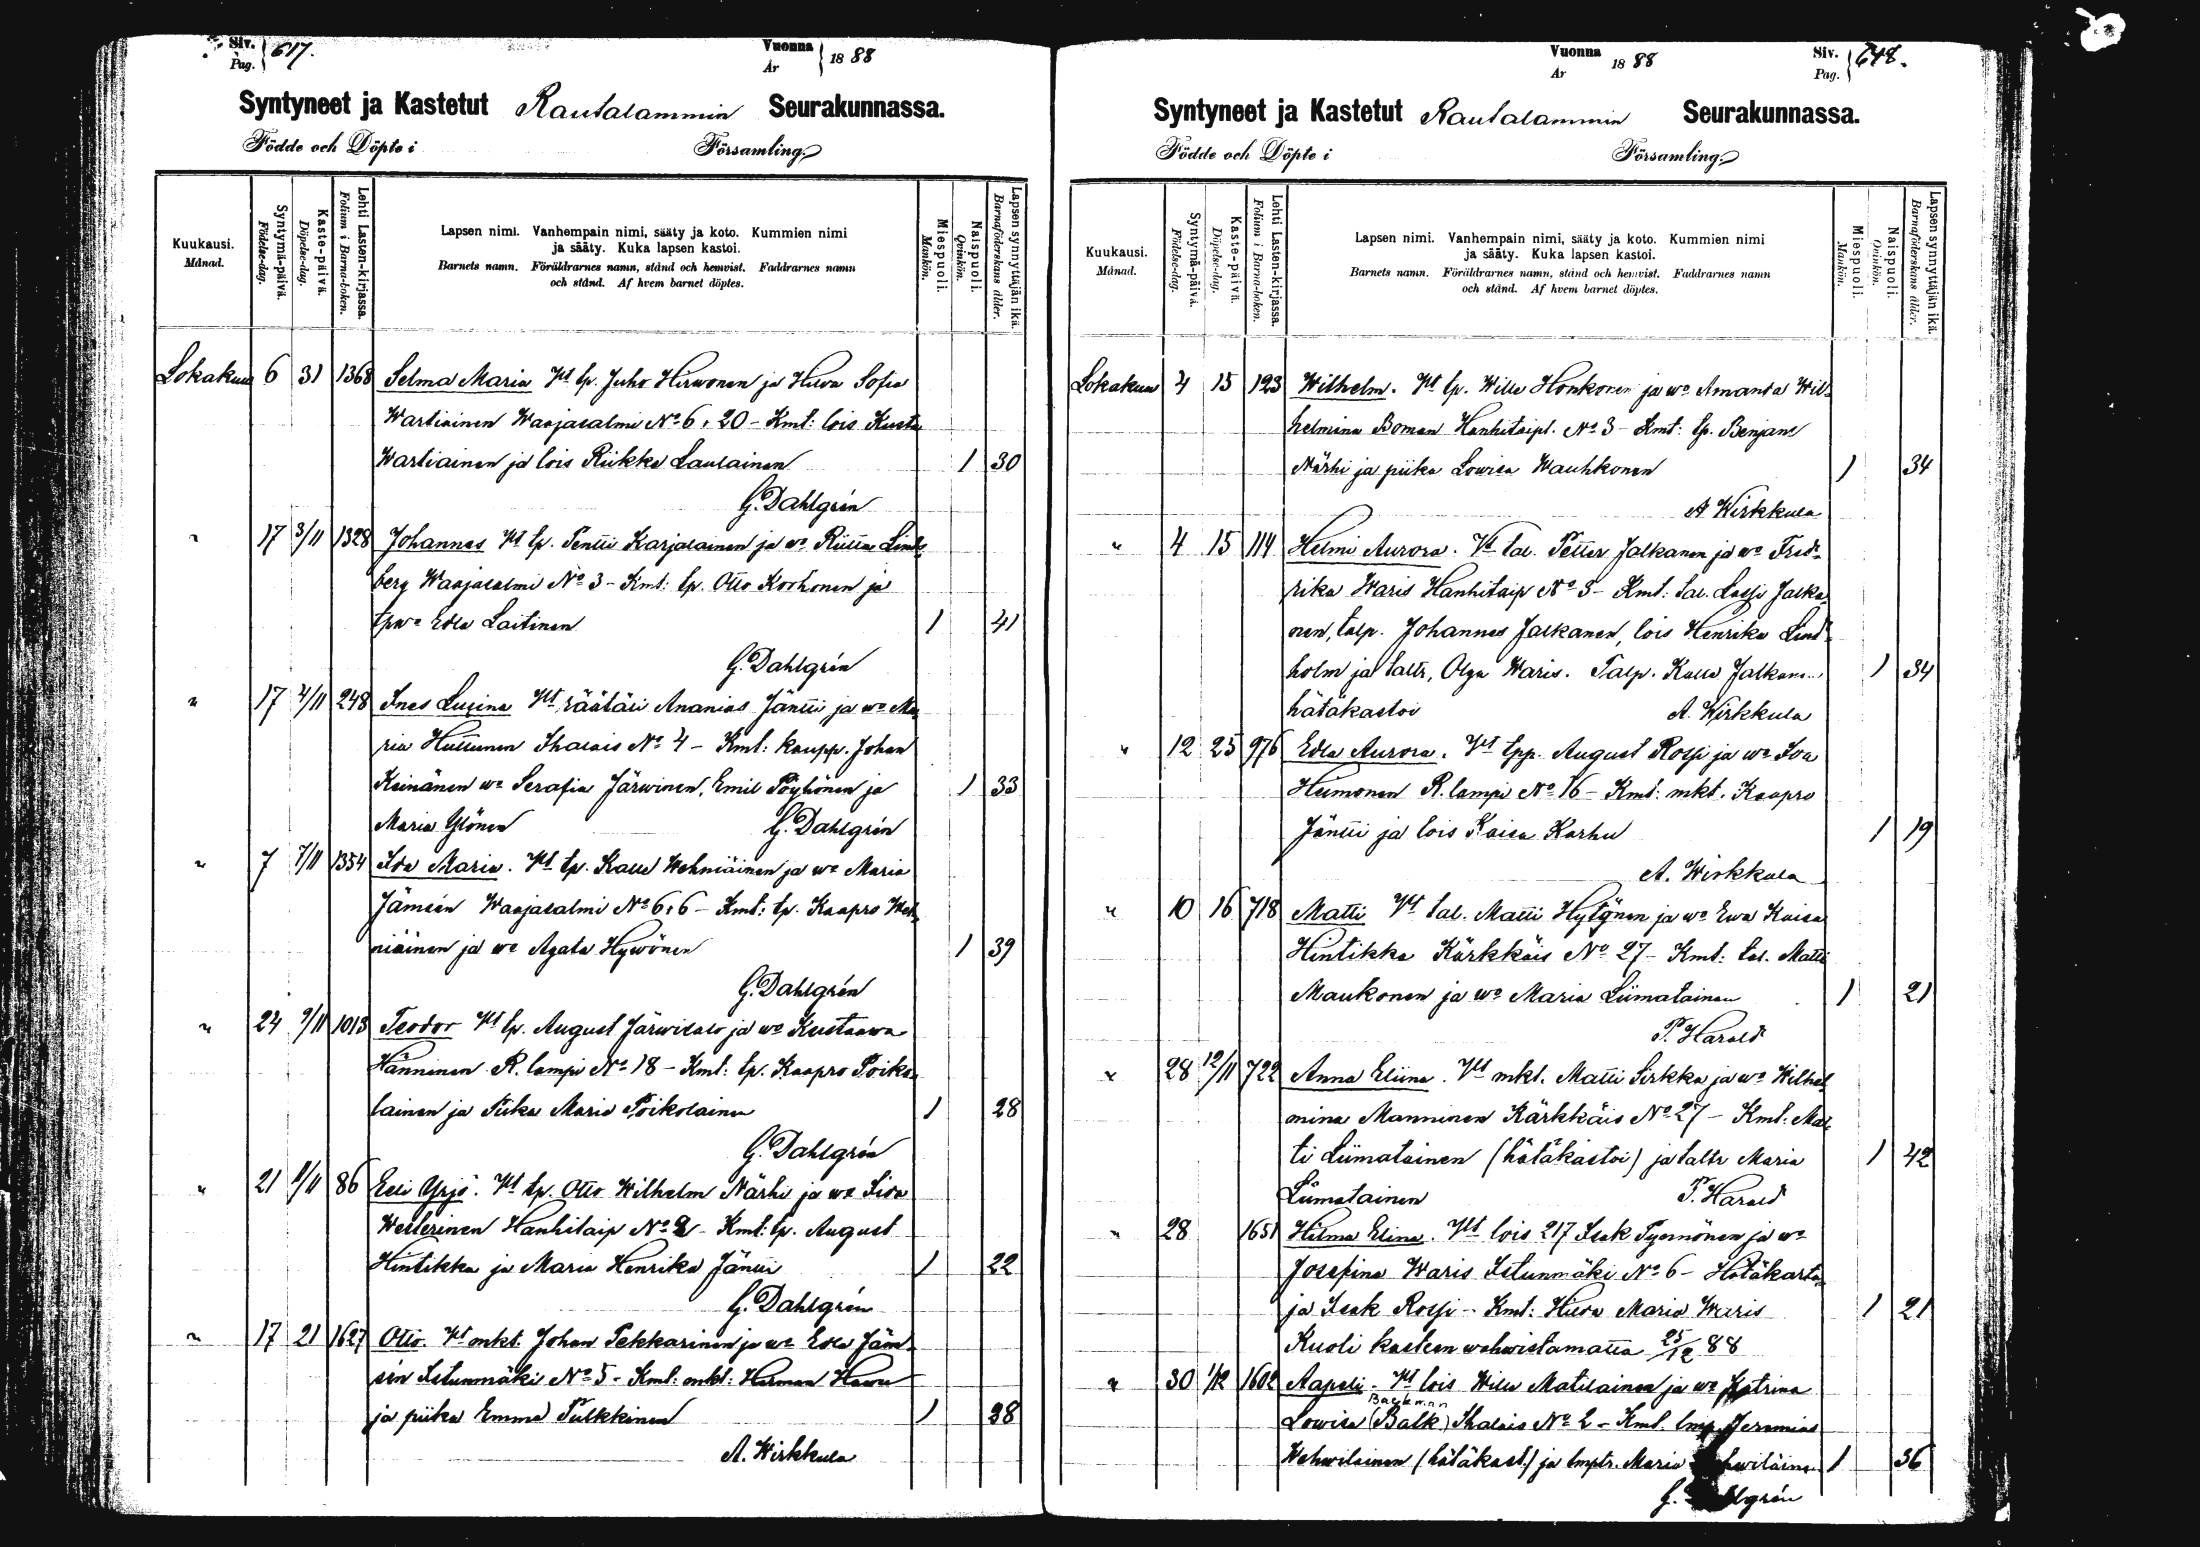 Siv. 617. Vuonna 1888
Pag. År
Syntyneet ja Kastetut Rautalammin Seurakunnassa.
Födde och Döpte i Församling.
Kuukausi. Månad.
Syntymä-päivä. Födelse-dag.
Kaste-päivä. Döpelse-dag.
Lehti Lasten-kirjassa. Folium i Barna-boken.
Lapsen nimi. Vanhempain nimi, sääty ja koto. Kummien nimi
ja sääty. Kuka lapsen kastoi.
Barnets namn. Föräldrarnes namn, stånd och hemvist. Faddrarnes namn
och stånd. Af hvem barnet döptes.
Miespuoli. Mankön.
Naispuoli. Qvinkön.
Lapsen synnyttäjän ikä. Barnaföderskans ålder.
Lokakuu 6 31 1368 Selma Maria Vt tp. Juho Hirwonen ja Hilda Sofia
Wartiainen Waajasalmi No 6, 20 - Kmt: lois Kusta
Wartiainen ja lois Riikka Laulainen 1 30
G. Dahlgrén
" 17 3/11 1328 Johannes Vt tp. Pentti Karjalainen ja wo Riitta Lind-
berg Waajasalmi No 3 - Kmt: tp. Otto Korhonen ja
tpwo Edla Laitinen 1 41
G. Dahlgrén
" 17 4/11 248 Ines Lusina Vt räätäli Ananias Jäntti ja wo Ma-
ria Huttunen Ihalais No 4 - Kmt: kaupp. Johan
Keinänen wo Serafia Järwinen, Emil Pöyhönen ja 1 33
Maria Ylönen G. Dahlgrén
" 7 7/11 1354 Ida Maria. Vt tp. Kalle Wehniäinen ja wo Maria
Jämsén Waajasalmi No 6, 6 - Kmt: tp. Kaapro Weh-
niäinen ja wo Agata Hywönen 1 39
G. Dahlgrén
" 24 9/11 1013 Teodor Vt tp. August Järwisalo ja wo Kustaawa
Hänninen R. lampi No 18 - Kmt: tp. Kaapro Poiko-
lainen ja Piika Maria Poikolainen 1 28
G. Dahlgrén
" 21 11/11 86 Eeli Yrjö. Vt tp. Otto Wilhelm Närhi ja wo Fida
Westerinen Hanhitaip No 2 - Kmt: tp. August
Hintikka ja Maria Henrika Jäntti 1 22
G. Dahlgrén
" 17 21 1627 Otto. Vt mkt. Johan Pekkarinen ja wo Edla Jäm-
sén Istunmäki No 5 - Kmt: mkt: Herman Hawu
ja piika Emma Pulkkinen 1 28
A. Wirkkula
Vuonna 1888 Siv. 648.
År Pag.
Syntyneet ja Kastetut Rautalammin Seurakunnassa.
Födde och Döpte i Församling.
Kuukausi. Månad.
Syntymä-päivä. Födelse-dag.
Kaste-päivä. Döpelse-dag.
Lehti Lasten-kirjassa. Folium i Barna-boken.
Lapsen nimi. Vanhempain nimi, sääty ja koto. Kummien nimi
ja sääty. Kuka lapsen kastoi.
Barnets namn. Föräldrarnes namn, stånd och hemvist. Faddrarnes namn
och stånd. Af hvem barnet döptes.
Miespuoli. Mankön.
Naispuoli. Qvinkön.
Lapsen synnyttäjän ikä. Barnaföderskans ålder.
Lokakuu 4 15 123 Wilhelm. Vt tp. Wille Honkonen ja wo Amanda Wil-
helmina Boman Hanhitaipl. No 3 - Kmt: tp. Benjam
Närhi ja piika Lowisa Wauhkonen 1 34
A Wirkkula
" 4 15 114 Helmi Aurora. Vt tal. Petter Jalkanen ja wo Fred-
rika Waris Hanhitaip No 3 - Kmt: tal. Lassi Jalka-
nen, talp. Johannes Jalkanen, lois Henrika Lind-
holm ja taltr, Olga Waris. Talp. Kalle Jalkanen 1 34
hätäkastoi A. Wirkkula
" 12 25 976 Edla Aurora. Vt tpp. August Rossi ja wo Iva
Heimonen R. lampi No 16 - Kmt: mkt. Kaapro
Jäntti ja lois Kaisa Karhu 1 19
A. Wirkkula
" 10 16 718 Matti Vt tal. Matti Hytönen ja wo Ewa Kaisa
Hintikka Kärkkäis No 27 - Kmt: tal. Matti
Maukonen ja wo Maria Liimatainen 1 21
P. Harald
" 28 12/11 722 Anna Eliina. Vt mkt. Matti Sirkka ja wo Wilhel
mina Manninen Kärkkäis No 27 - Kmt: Mat-
ti Liimatainen (hätäkastoi) ja taltr Maria 1 42
Liimatainen P. Harald
" 28 1651 Hilma Elina. Vt lois 217 Isak Tyennönen ja wo
Josefina Waris Istunmäki No 6 - Hätäkasta-
ja Isak Rossi - Kmt: Hilda Maria Waris 1 21
Kuoli kasteen wahwistamatta 25/12 88
" 30 1/12 1602 Aapeli - Vt lois Wille Matilainen ja wo Katrina
Backman
Lowisa (Balk) Ihalais No 2 - Kmt. lmp Jeremias
Wehwiläinen (hätäkast.) ja lmptr. Maria 1 36
G. Dahlgrén